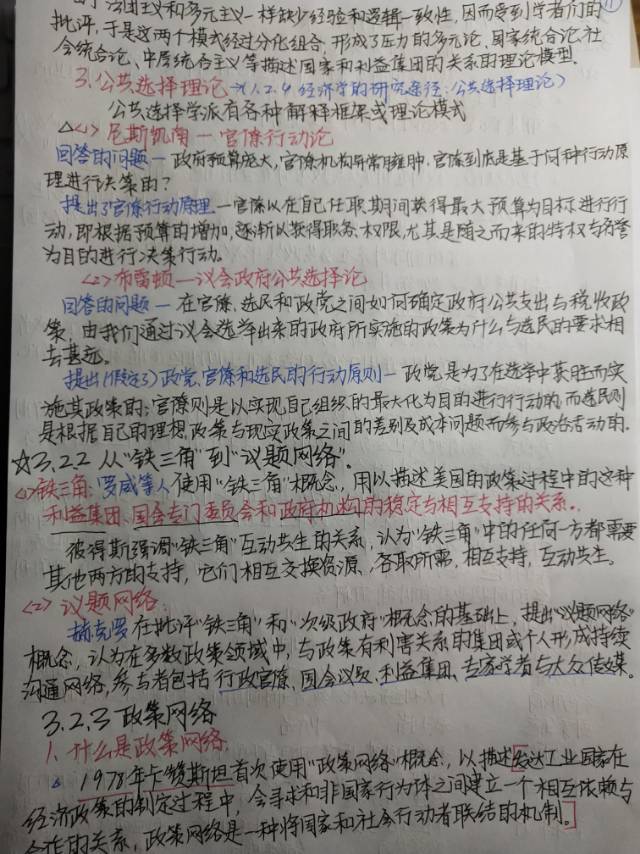 法团主义和多元主义一样缺少经验和逻辑一致性,因而受到学者们的
批评,于是这两个模式经过分化组合,形成了压力的多元论、国家统合论、社
会统合论、中层统合主义等描述国家和利益集团的关系的理论模型.
3.公共选择理论→(1.2.4 经济学的研究途径:公共选择理论)
公共选择学派有各种解释框架或理论模式
△<1> 尼斯凯南—官僚行动论
回答的问题—政府预算庞大,官僚机构异常臃肿.官僚到底是基于何种行动原
理进行决策的?
提出了官僚行动原理—官僚以在自己任职期间获得最大预算为目标进行行
动,即根据预算的增加,逐渐以获得职务.权限,尤其是随之而来的特权与名誉
为目的进行决策行动.
<2> 布雷顿—议会政府公共选择论
回答的问题—在官僚、选民和政党之间如何确定政府公共支出与税收政
策,由我们通过议会选举出来的政府所实施的政策为什么与选民的要求相
去甚远.
提出(假定了)政党、官僚和选民的行动原则—政党是为了在选举中获胜而实
施其政策的;官僚则是以实现自己组织的最大化为目的进行行动的,而选民则
是根据自己的理想政策与现实政策之间的差别及成本问题而参与政治活动的.
☆3.2.2 从"铁三角"到"议题网络".
<1>铁三角:罗威等人使用"铁三角"概念,用以描述美国的政策过程中的这种
利益集团、国会专门委员会和政府机构的稳定与相互支持的关系.
彼得斯强调"铁三角"互动共生的关系,认为"铁三角"中的任何一方都需要
其他两方的支持,它们相互交换资源、各取所需,相互支持,互动共生.
<2> 议题网络:
赫克罗在批评"铁三角"和"次级政府"概念的基础上,提出"议题网络"
概念,认为在多数政策领域中,与政策有利害关系的集团或个人形成持续
沟通网络,参与者包括行政官僚、国会议员、利益集团、专家学者与大众传媒.
3.2.3 政策网络
1.什么是政策网络:
△ 1978年卡赞斯坦首次使用"政策网络"概念,以描述[发达工业国家在
经济政策的制定过程中,会寻求和非国家行为体之间建立一个相互依赖与
合作的关系,政策网络是一种将国家和社会行动者联结的机制.]